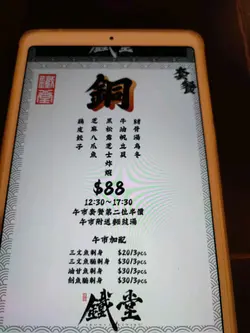 鐵堂
鐵堂
套餐
銅
豬骨湯烏冬
牛油帆立貝
黑松露芝士炸蝦
芝麻八爪魚
鷄皮餃子
$88
12:30~17:30
午市套餐第二位半價
午市附送麵豉湯
午市加配
三文魚刺身 $20/3pcs
三文魚腩刺身 $30/3pcs
油甘魚刺身 $30/3pcs
劍魚腩刺身 $30/3pcs
鐵堂